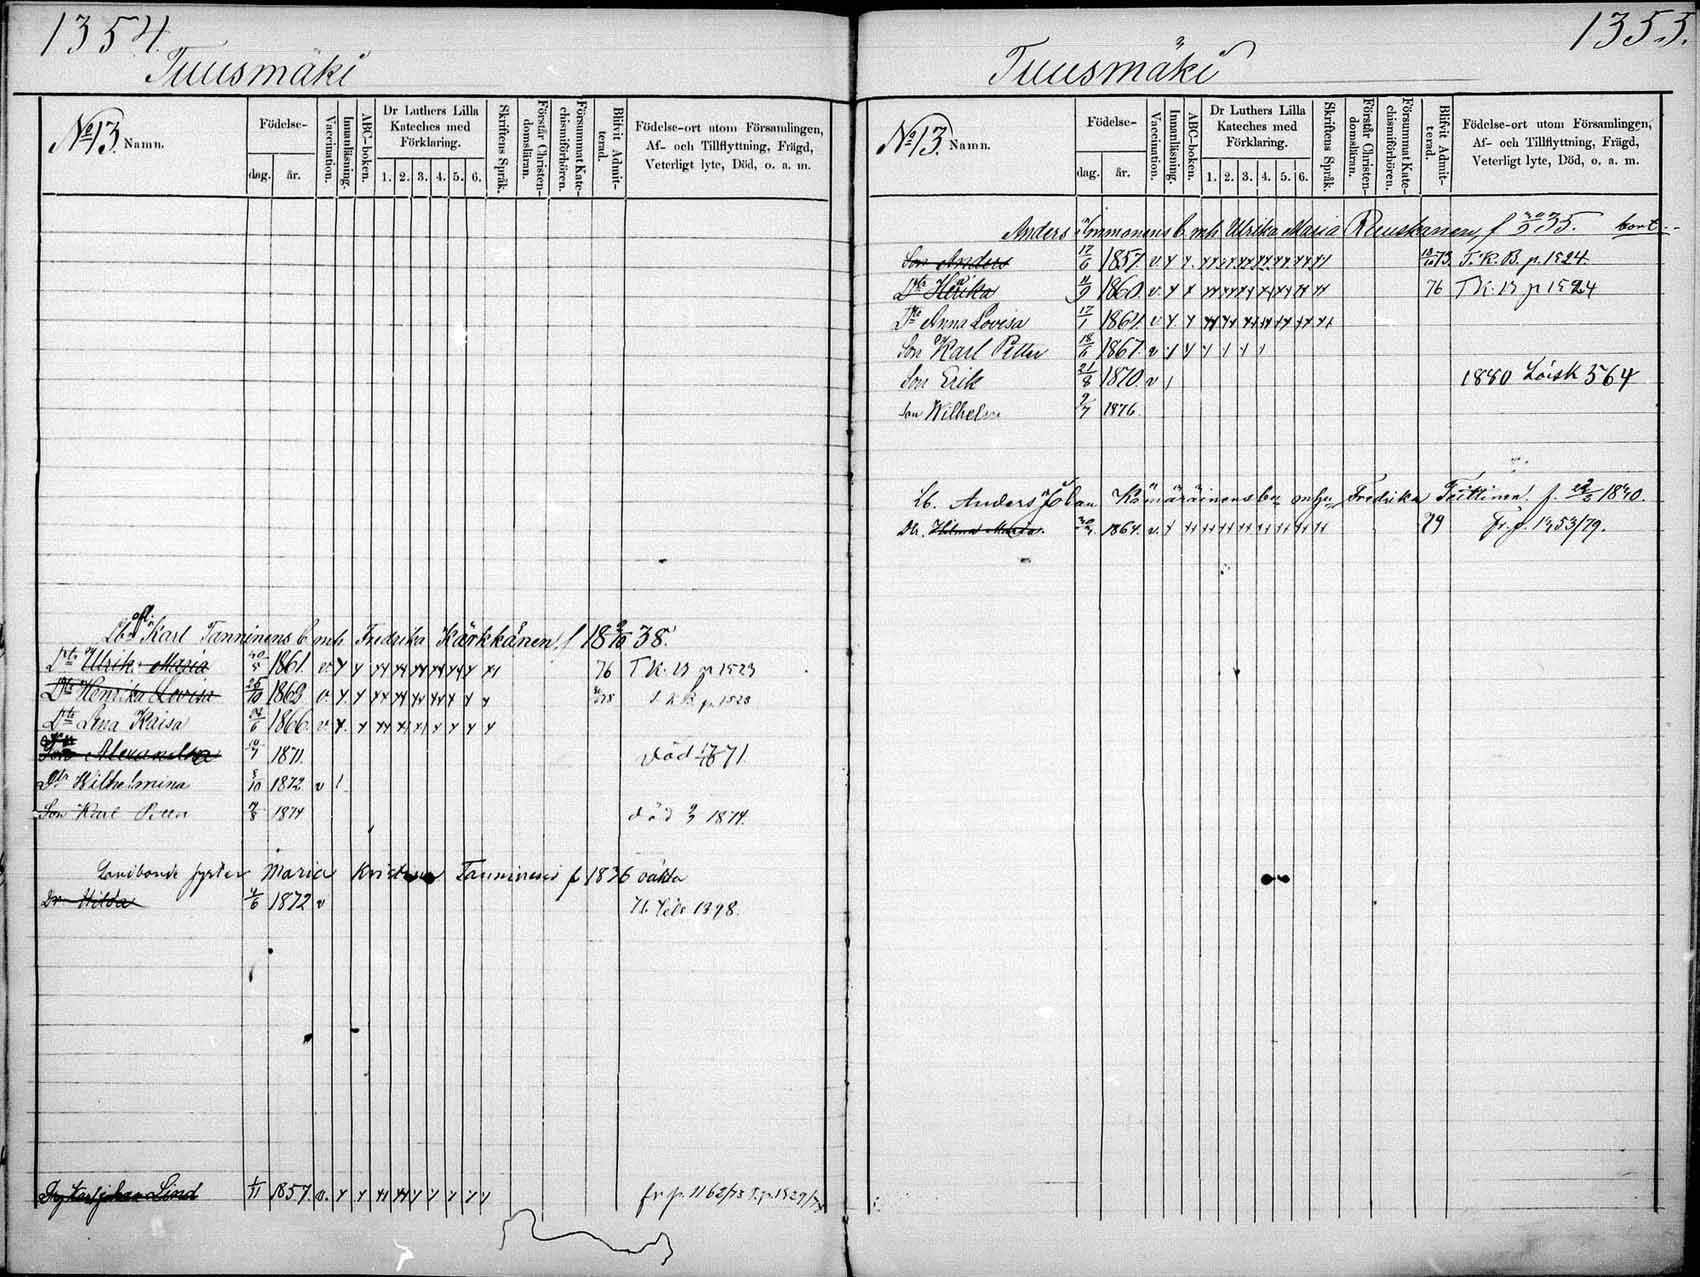 1354.
Tuusmäki
No 13. Namn.
Födelse-
dag. år.
Vaccination.
Innanläsning.
ABC-boken.
Dr Luthers Lilla
Kateches med
Förklaring.
1. 2. 3. 4. 5. 6.
Skriftens Språk.
Förstår Christen-
domsläran.
Försummat Kate-
chismiförhören.
Blifvit Admit-
terad.
Födelse-ort utom Församlingen,
Af- och Tillflyttning, Frägd,
Veterligt lyte, Död, o. a. m.
Karl Tanninens b mh Fredrika Kärkkänen f 18 9/10 38.
Dtr Ulrik. Maria 1861. v. 76 T K. B p 1523
Dtr Henrika Lovisa 25/10 1863 v. T K B p. 1523
Dtr Lena Kaisa 1866. v.
Alexandra 1871. död 71.
Dtr Wilhelmina 3/10 1872 v
Son Karl Petter 1874 död 1874.
Landbonde syster Maria Kristina Tanninens f 1836 oäkta
Dr Hilda 4/6 1872 v
Karl Johan Lind 1/11 1857. v. fr p. 1162/75
1355.
Tuusmäki
No 13. Namn.
Födelse-
dag. år.
Vaccination.
Innanläsning.
ABC-boken.
Dr Luthers Lilla
Kateches med
Förklaring.
1. 2. 3. 4. 5. 6.
Skriftens Språk.
Förstår Christen-
domsläran.
Försummat Kate-
chismiförhören.
Blifvit Admit-
terad.
Födelse-ort utom Församlingen,
Af- och Tillflyttning, Frägd,
Veterligt lyte, Död, o. a. m.
Anders Immonens b mh Ulrika Maria Ruuskanen f 35. bort.
Son Anders 17/6 1857. v. 73. T. K. B. p. 1524.
Dtr Ulrika 1860. v. 76 T K. B p 1524
Dtr Anna Lovisa 17/1 1864. v.
Son Karl Petter 18/6 1867. v
Son Erik 21/8 1870. v 1880 Löisk 564
Son Wilhelm 9/7 1876.
Lb. Anders Johan Kämäräinens b mh Fredrika Teittinen f. 1840.
Dtr. Hilma Maria. 1864. v. 79 Fr. p. 1353/79.